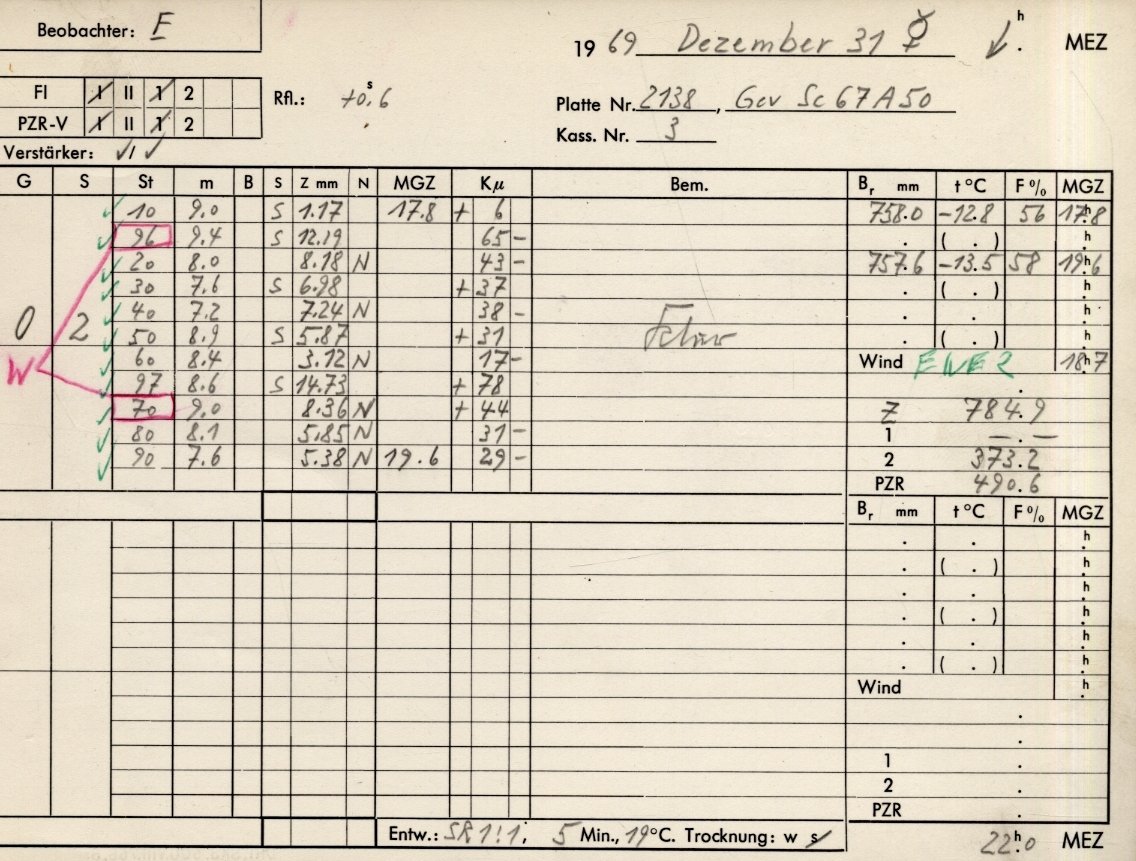 Beobachter: F
19 69 Dezember 31 ☿ h . MEZ
FI I II 1 2
PZR-V I II 1 2
Rfl.: +0.ˢ6
Platte Nr. 2138, Gev Sc 67 A 50
Kass. Nr. 3
Verstärker: √ / √
G S St m B S Z mm N MGZ Kμ Bem. Br mm t°C F% MGZ
10 9.0 S 1.17 17.8 + 6 758.0 -12.8 56 17.ʰ8
96 9.4 S 12.19 65 - . ( . ) h
20 8.0 8.18 N 43 - 757.6 -13.5 58 19.ʰ6
30 7.6 S 6.98 + 37 . ( . ) h
0 2 40 7.2 7.24 N 38 - . . h
50 8.9 S 5.87 + 31 . ( . ) h
W 60 8.4 3.12 N 17 - Wind ENE 2 18.ʰ7
97 8.6 S 14.73 + 78 .
70 9.0 8.36 N + 44 Z 784.9
80 8.1 5.85 N 31 - 1 — . —
90 7.6 5.38 N 19.6 29 - 2 373.2
PZR 490.6
Br mm t°C F% MGZ
. . h
. ( . ) h
. . h
. ( . ) h
. . h
. ( . ) h
Wind h
.
.
1 .
2 .
PZR .
Entw.: SR 1:1, 5 Min., 19°C. Trocknung: w s 22.ʰ0 MEZ